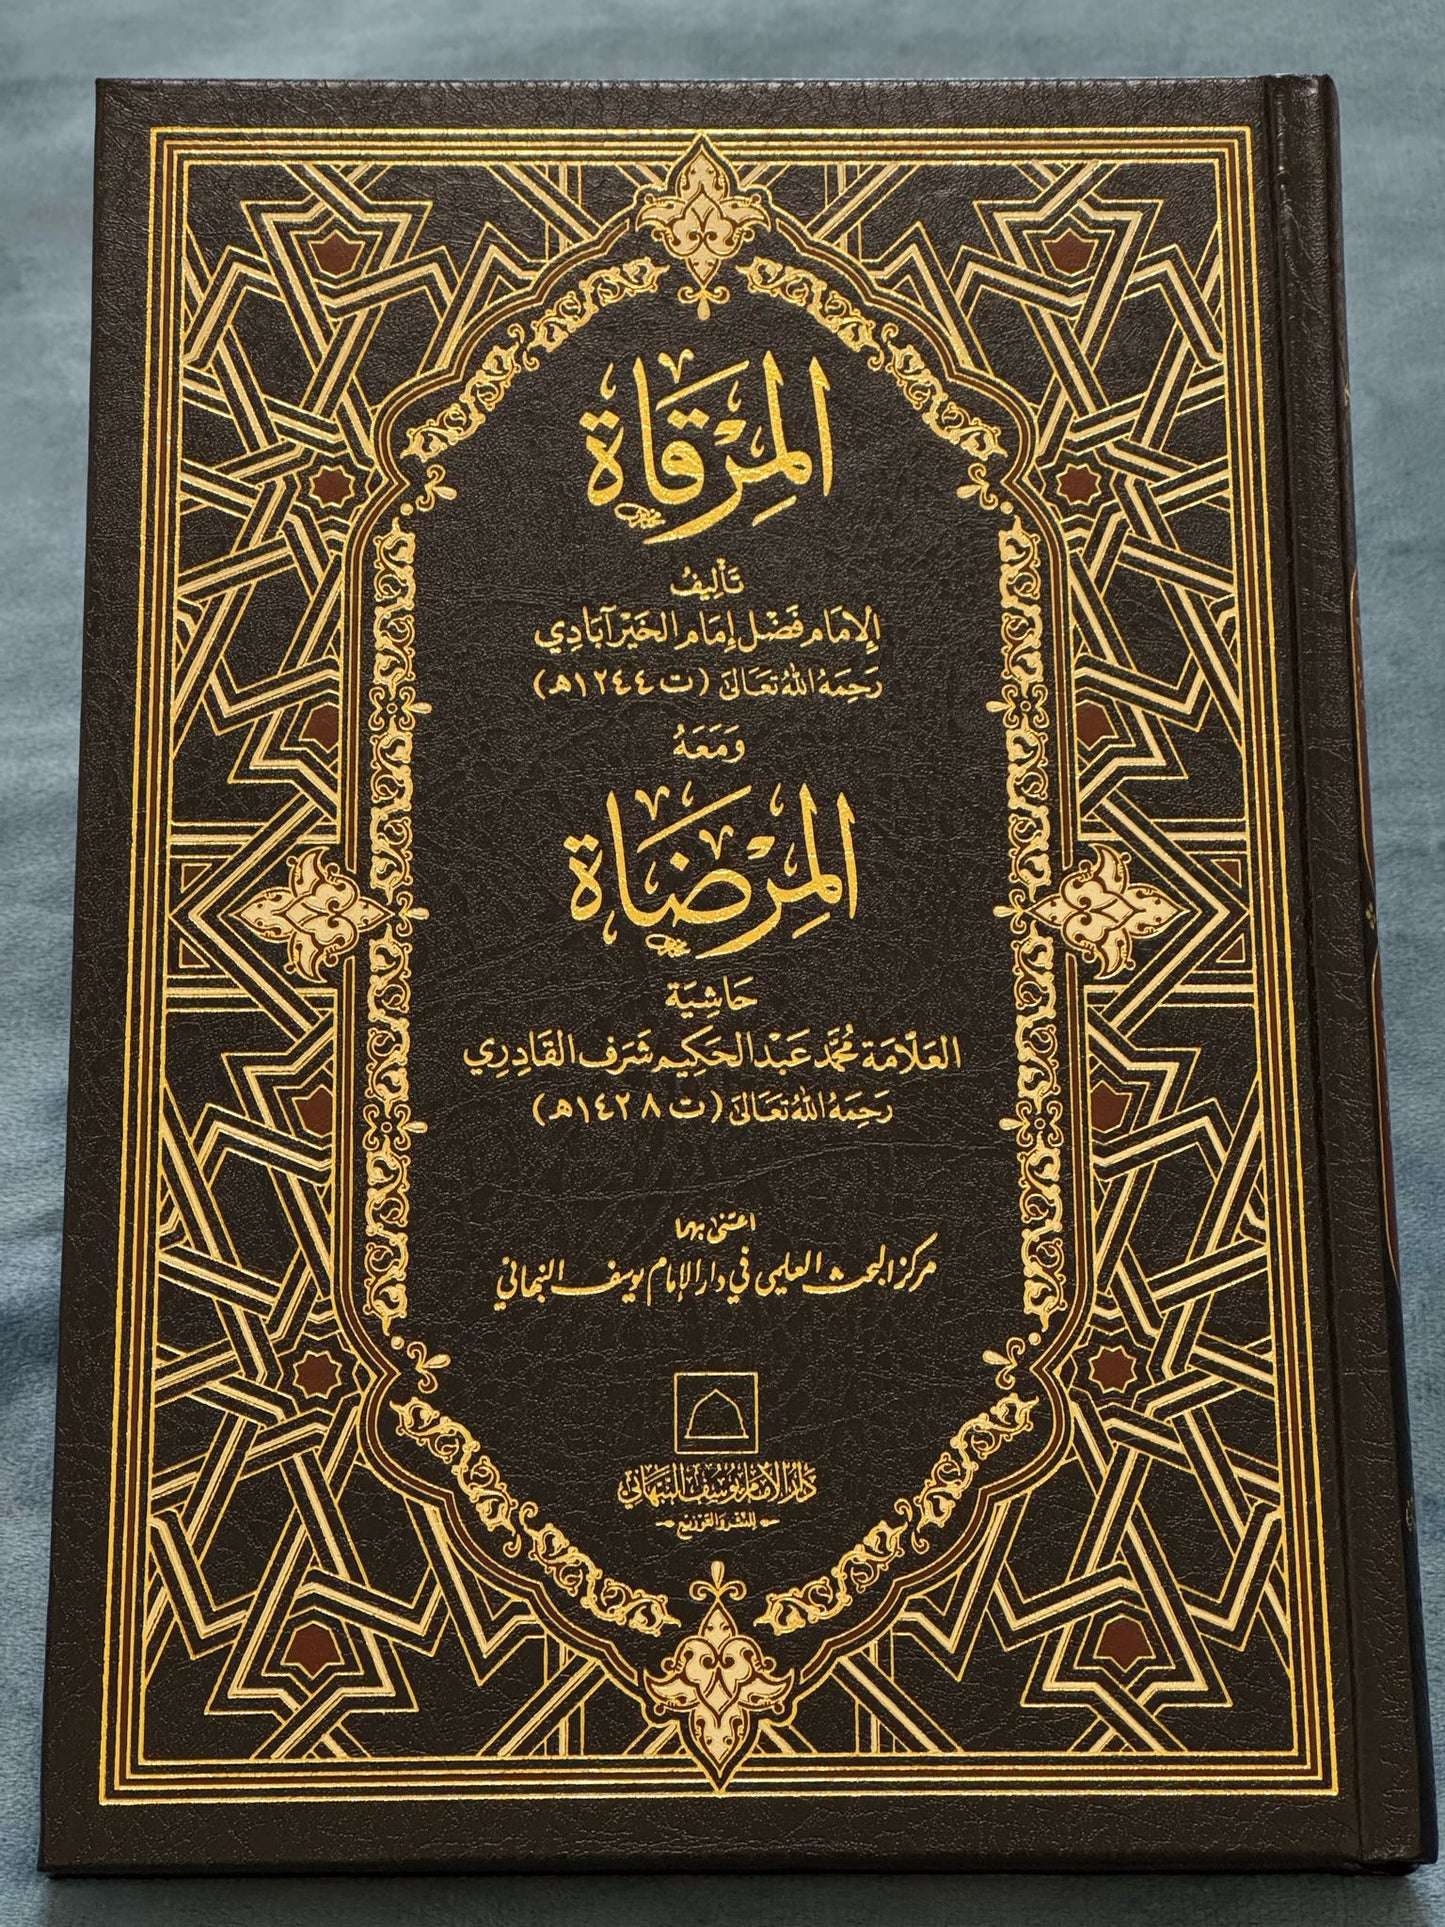 المِرْقَاة
تَأْلِيفُ
الإمَام فَضْل إمَام الخَيْرآبَادِي
رَحِمَهُ اللهُ تَعَالَى (ت ١٢٤٤هـ)
وَمَعَهُ
المِرْضَاة
حَاشِيَة
العَلَّامَة مُحَمَّد عَبْد الحَكِيم شَرَف القَادِرِي
رَحِمَهُ اللهُ تَعَالَى (ت ١٤٢٨هـ)
اعتنى بهما
مركز البحث العلمي في دار الإمام يوسف النبهاني
دَارُ الإمَام يُوسُف النَّبْهَانِي
للنشر والتوزيع